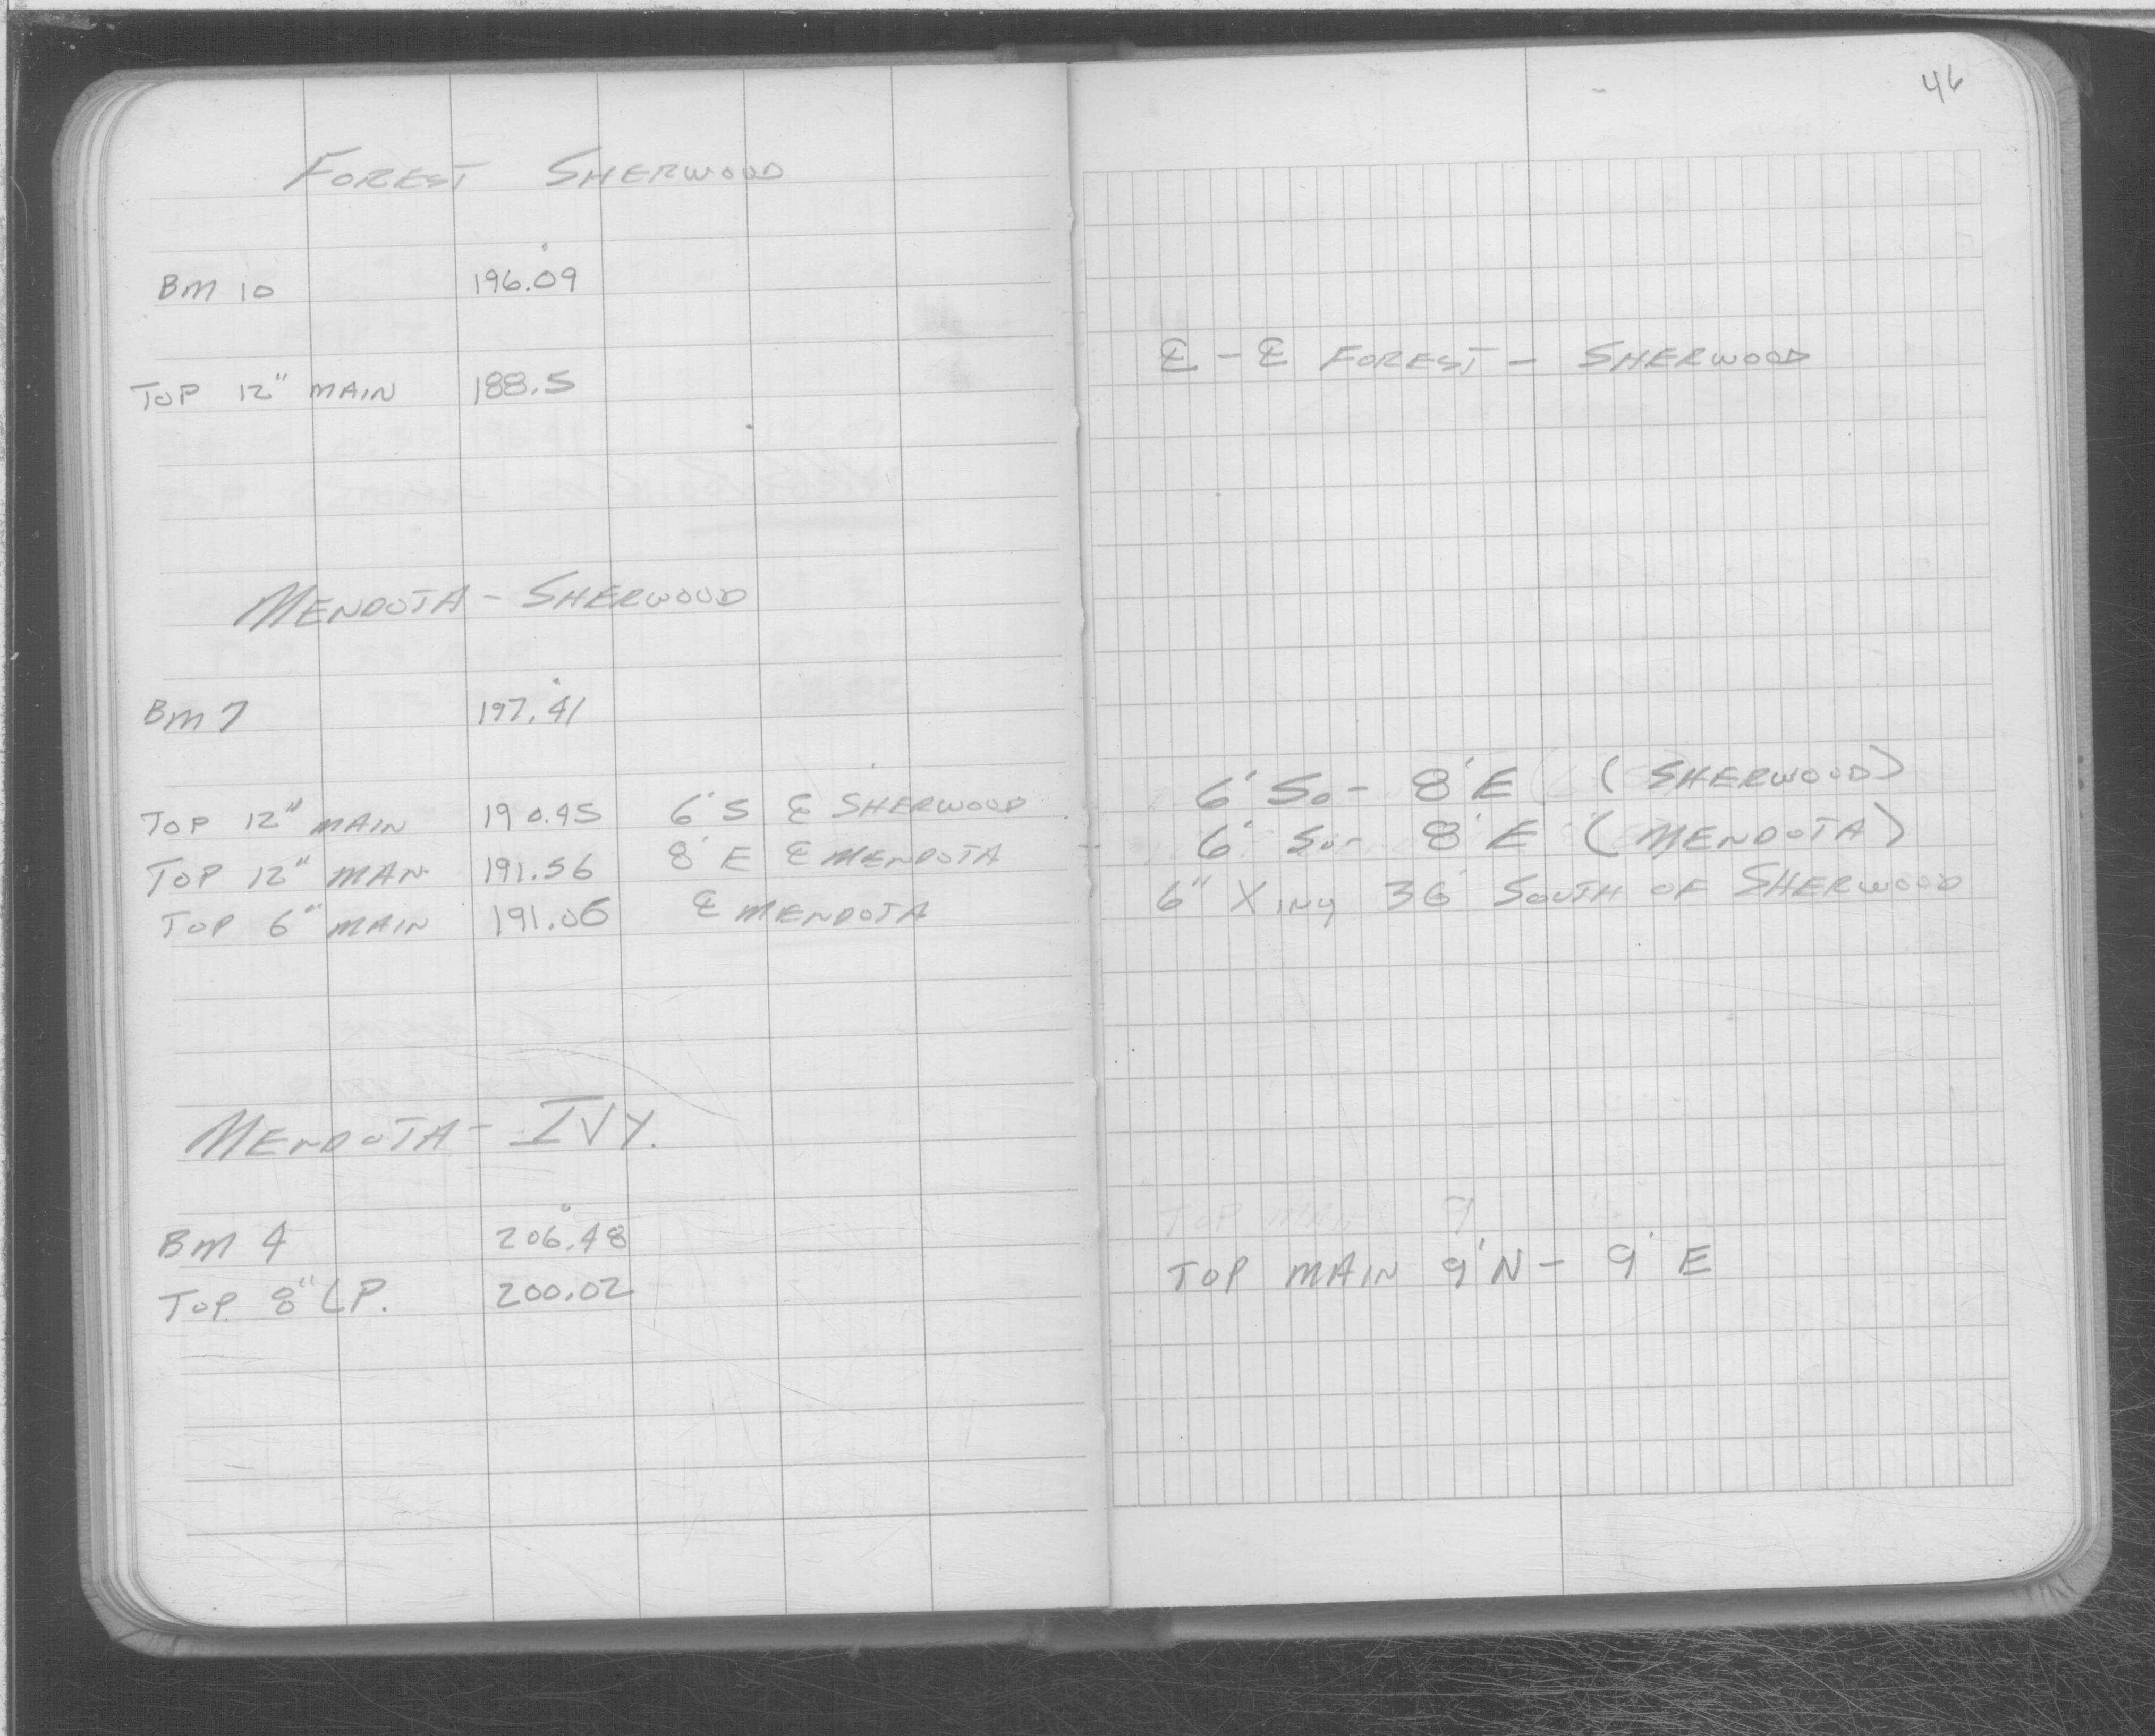 46
FOREST SHERWOOD
BM 10 196.09
TOP 12" MAIN 188.5
MENDOTA - SHERWOOD
BM 7 197.41
TOP 12" MAIN 190.45 6' S ℄ SHERWOOD
TOP 12" MAN 191.56 8' E ℄ MENDOTA
TOP 6" MAIN 191.06 ℄ MENDOTA
MENDOTA - IVY.
BM 4 206.48
TOP 8" LP. 200.02
℄ - ℄ FOREST - SHERWOOD
6' So - 8' E (SHERWOOD)
6' So - 8' E (MENDOTA)
6" Xing 36' SOUTH OF SHERWOOD
TOP MAIN 9
TOP MAIN 9' N - 9' E